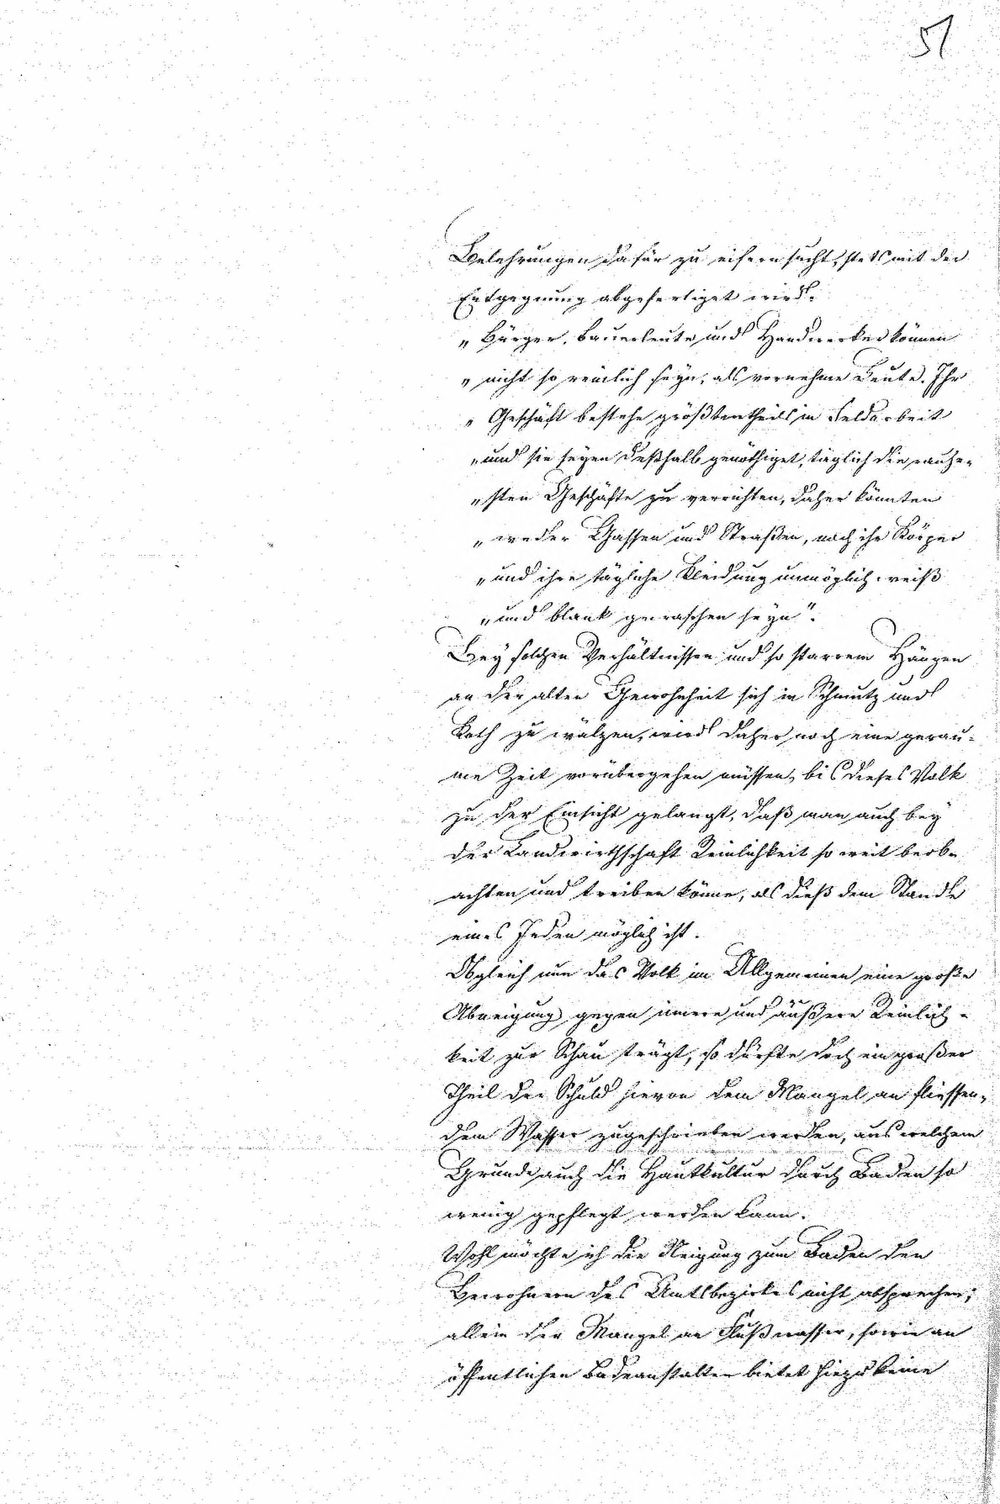 51
Belehrungen dafür zu eifern sucht, stets mit der
Entgegnung abgefertiget wird:
„ Bürger, Bauersleute und Handwerker können
„ nicht so reinlich seyn, als vornehme Leute. Ihr
„ Geschäft bestehe größtentheils in Feldarbeit
„ und sie seyen deßhalb genöthiget, täglich die rauhe-
„ sten Geschäfte zu verrichten, daher könnten
„ weder Gassen und Straßen, noch ihr Körper
„ und ihre tägliche Kleidung unmöglich weiß
„ und blank gewaschen seyn“.
Bey solchen Verhältnissen und so starrem Hängen
an der alten Gewohnheit sich in Schmutz und
Koth zu wälzen, wird daher noch eine gerau-
me Zeit vorübergehen müssen, bis dieses Volk
zu der Einsicht gelangt, daß man auch bey
der Landwirthschaft Reinlichkeit so weit beob-
achten und treiben könne, als dieß dem Stande
eines Jeden möglich ist.
Obgleich nun das Volk im Allgemeinen eine große
Abneigung gegen innere und äußere Reinlich-
keit zur Schau trägt, so dürfte doch ein großer
Theil der Schuld hievon dem Mangel an fliessen-
dem Wasser zugeschrieben werden, aus welchem
Grunde auch die Hautkultur durch Baden so
wenig gepflegt werden kann.
Wohl möchte ich die Neigung zum Baden den
Bewohnern des Amtsbezirkes nicht absprechen;
allein der Mangel an Flußwasser, sowie an
öffentlichen Badeanstalten bietet hiezu keine